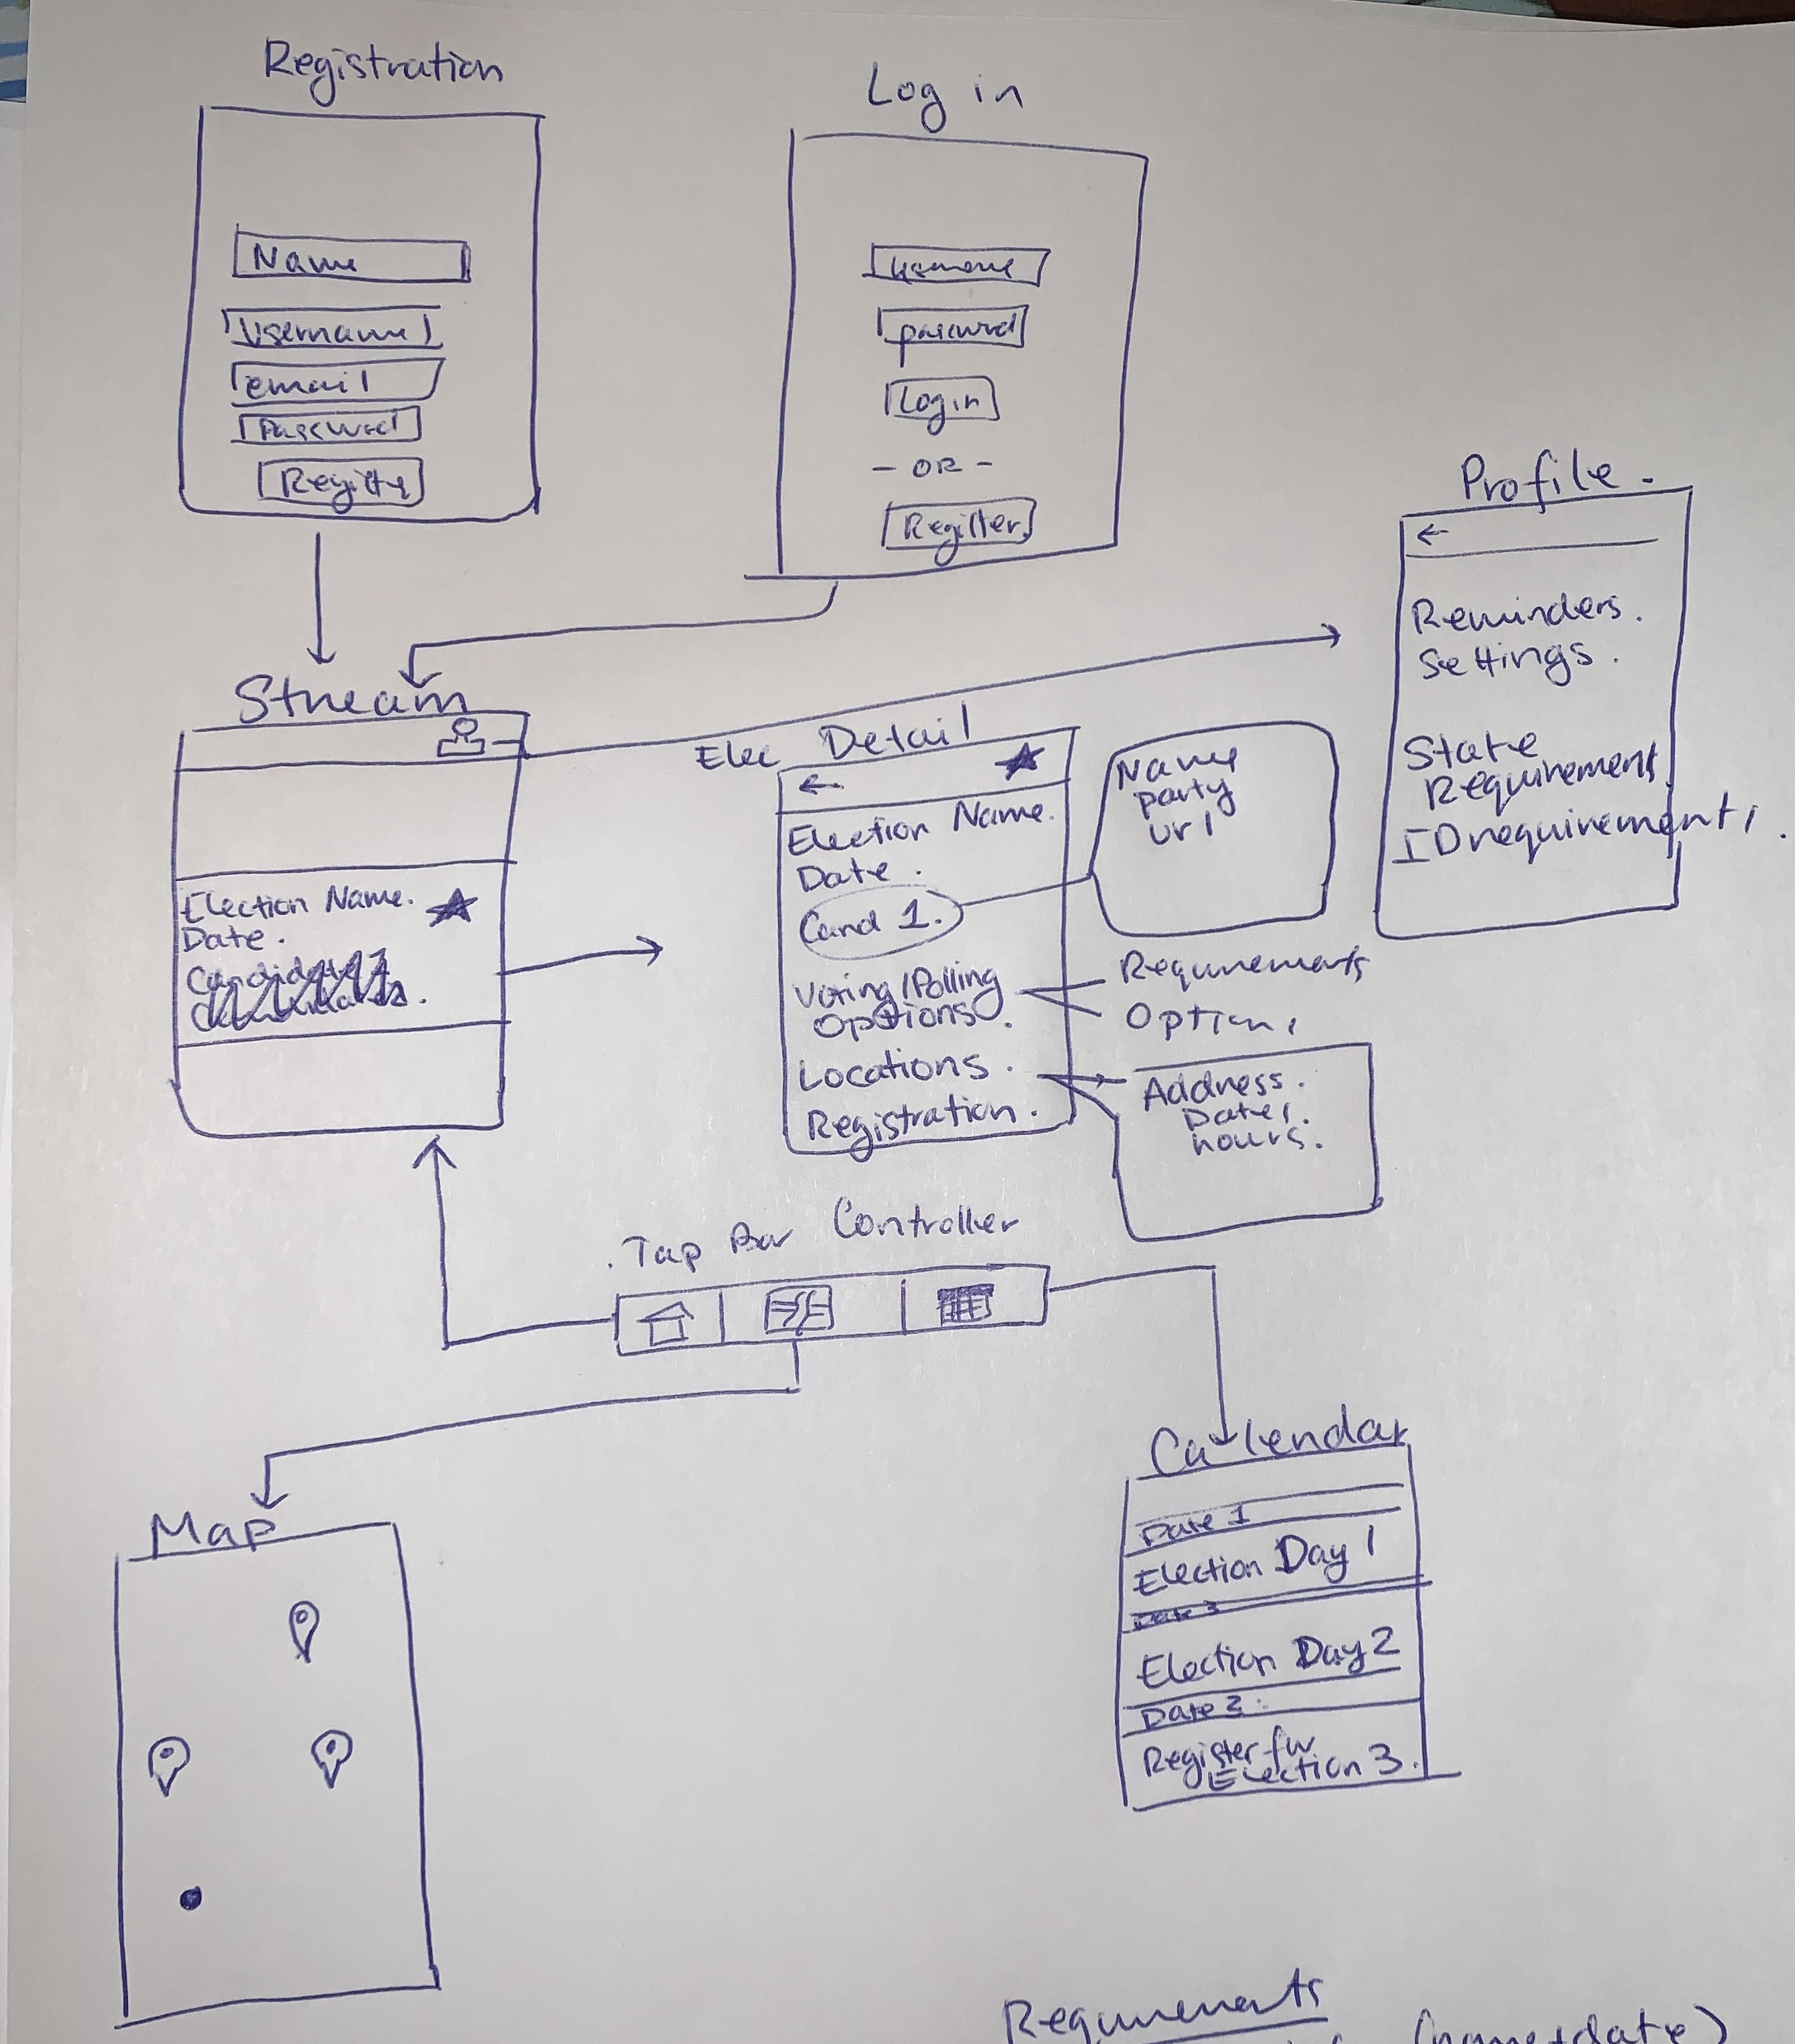 Registration
Name
Username
email
Password
Log in
username
password
Login
- OR -
Register
Profile.
←
Reminders.
Settings.
State
Requirement
ID requirements.
Stream
Election Name.
Date.
Elec Detail
←
Election Name.
Date.
Cand 1.
Voting/Polling
Options.
Locations.
Registration.
Name
party
url
Requirements
Options
Address.
Dates.
hours.
Tap Bar Controller
Map
Calendar
Date 1
Election Day 1
Election Day 2
Register for
Election 3.
Requirements
(name+date)